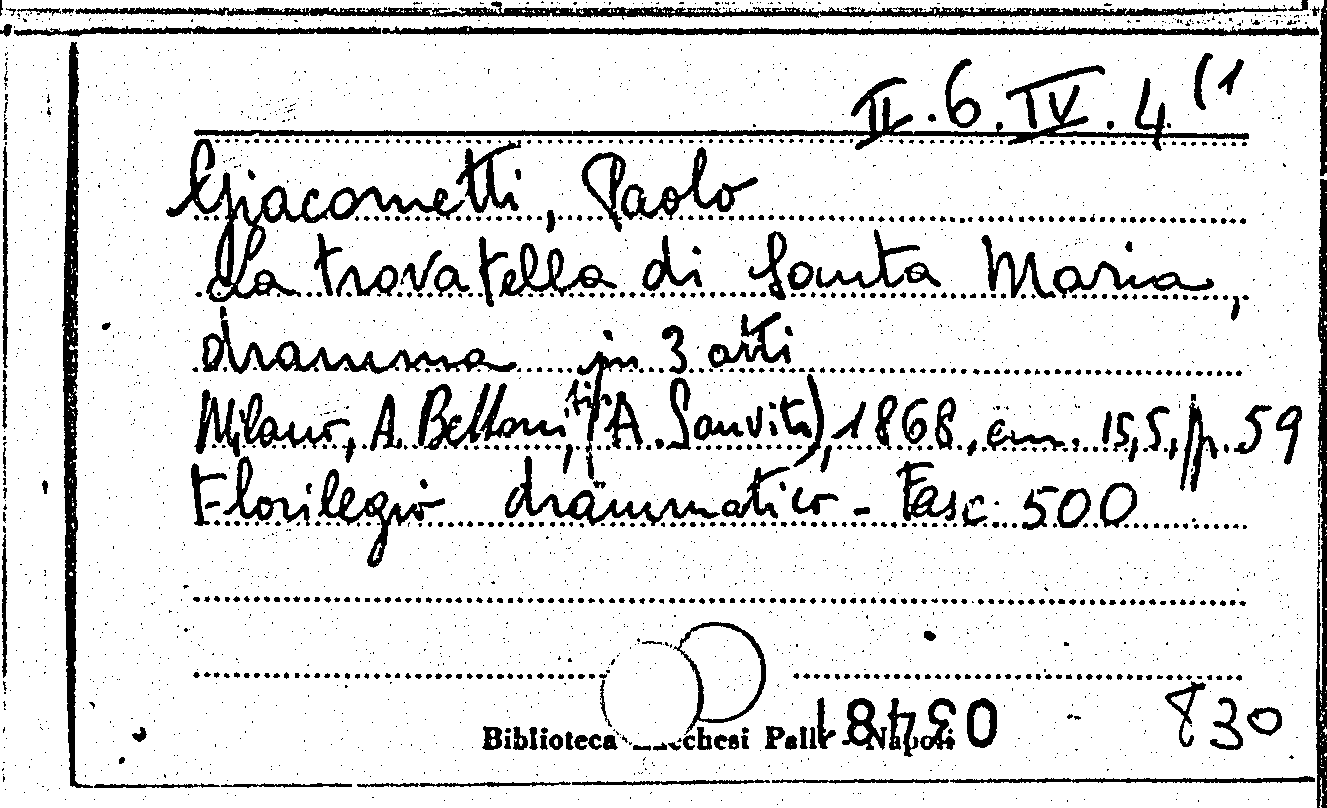 II.6.IV.4(1
Giacometti, Paolo
La trovatella di Santa Maria,
dramma in 3 atti
Milano, A. Bettoni, (tip. A. Sanvito), 1868, cm. 15,5, p. 59
Florilegio drammatico - Fasc. 500
Biblioteca Lucchesi Palli - Napoli
830